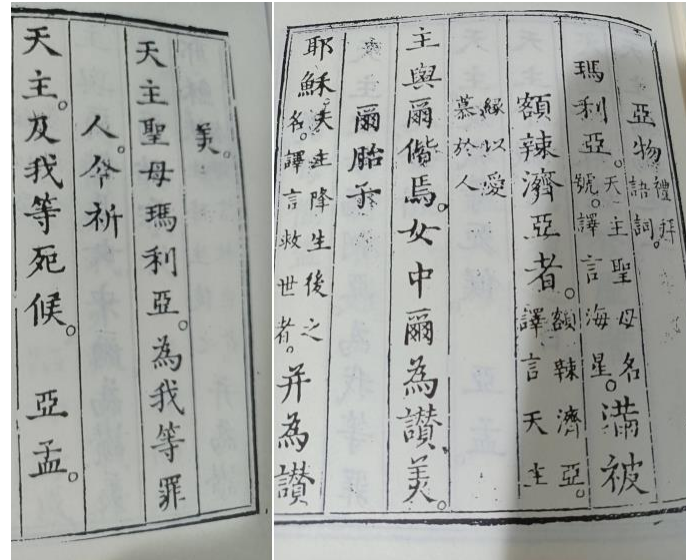 亞物禮拜語詞。
瑪利亞。天主聖母名號。譯言海星。滿被
額辣濟亞者。額辣濟亞。譯言天主
緣以愛慕於人
主與爾偕焉。女中爾為讚美。
爾胎子
耶穌。天主降生後之名。譯言救世者。并為讚
美。
天主聖母瑪利亞。為我等罪
人。今祈
天主。及我等死候。 亞孟。